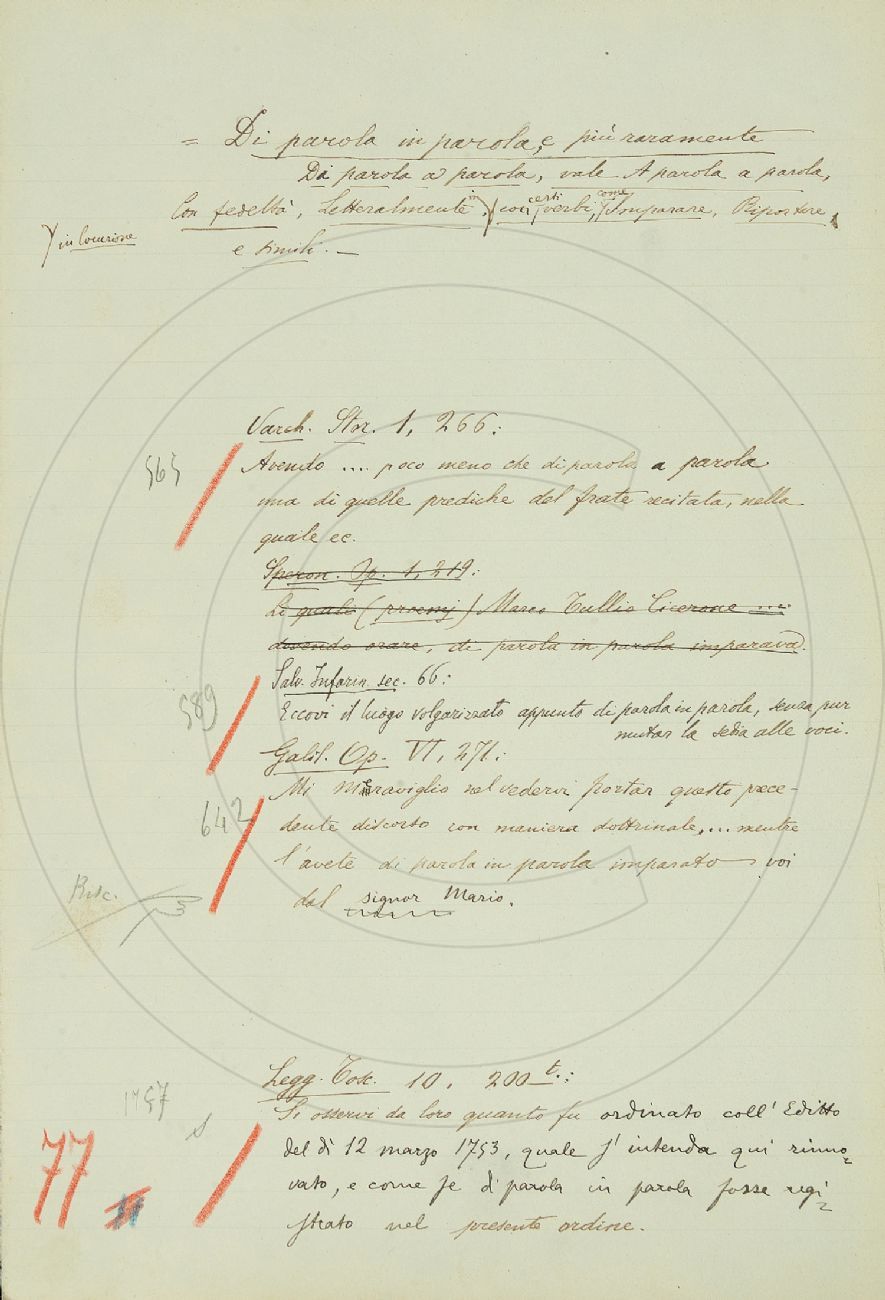 = Di parola in parola, e più raramente
Di parola a parola, vale A parola a parola,
Con fedeltà, Letteralmente; in con certi verbi, come Imparare, Riportare,
in locuzione
e simili. —
Varch. Stor. 1, 266:
565
Avendo .... poco meno che di parola a parola
una di quelle prediche del frate recitata, nella
quale ec.
Speron. Op. 1, 219:
Li quali (proemj) Marco Tullio Cicerone ....
devendo orare, di parola in parola imparava.
Salv. Infarin. sec. 66:
589
Eccovi il luogo volgarizzato appunto di parola in parola, senza pur
mutar la sedia alle voci.
Galil. Op. VI, 271:
Mi meraviglio nel vedervi portar questo prece-
642
dente discorso con maniera dottrinale, ... mentre
l'avete di parola in parola imparato voi
dal signor Mario.
Legg. Tosc. 10, 200 t.:
1757
Si osservi da loro quanto fu ordinato coll' Editto
del dì 12 marzo 1753, quale s' intenda qui rinno=
77
vato, e come se di parola in parola fosse regi=
strato nel presente ordine.